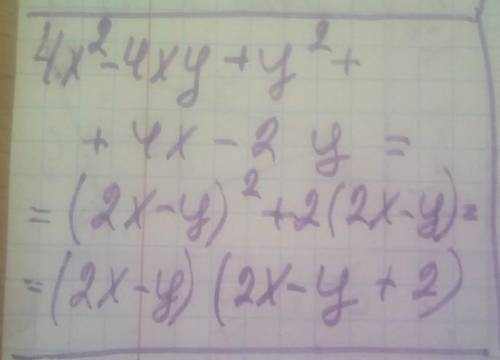 4x² - 4xy + y² +
+ 4x - 2 y =
= (2x - y)² + 2(2x - y) =
= (2x - y) (2x - y + 2)